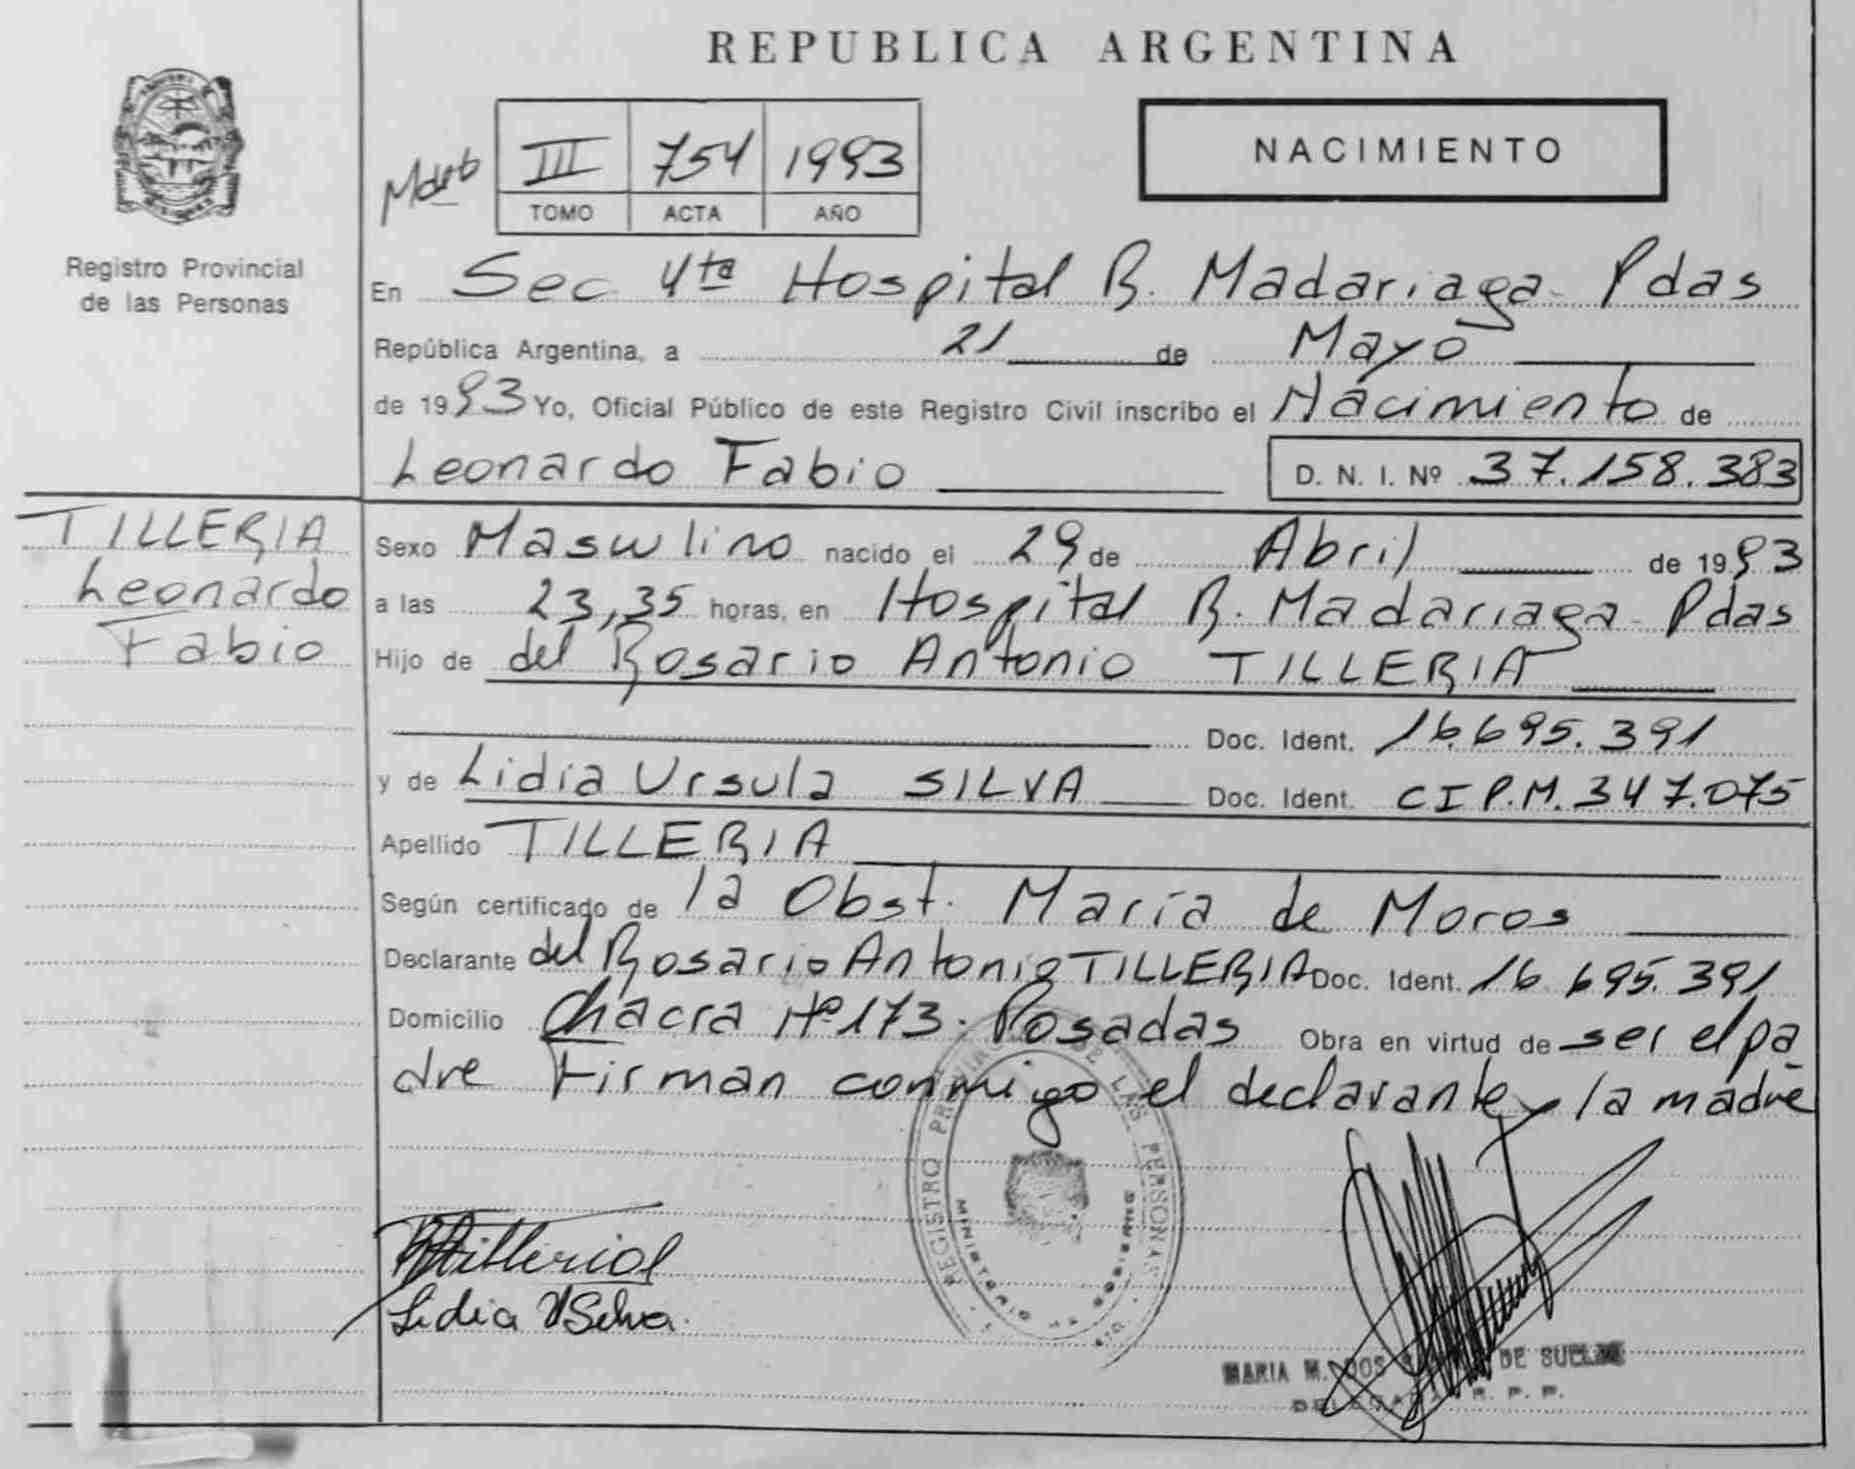 REPUBLICA ARGENTINA
NACIMIENTO
III 754 1993
TOMO ACTA AÑO
Registro Provincial
de las Personas
En Sec 4ta Hospital R. Madariaga - Pdas
República Argentina, a 21 de Mayo
de 1993 Yo, Oficial Público de este Registro Civil inscribo el Nacimiento de
Leonardo Fabio D. N. I. Nº 37.158.383
TILLERIA
Leonardo
Fabio
Sexo Masculino nacido el 29 de Abril de 1993
a las 23,35 horas, en Hospital R. Madariaga - Pdas
Hijo de del Rosario Antonio TILLERIA
Doc. Ident. 16.695.391
y de Lidia Ursula SILVA Doc. Ident. CI P.M. 347.075
Apellido TILLERIA
Según certificado de la Obst. María de Moros
Declarante del Rosario Antonio TILLERIA Doc. Ident. 16.695.391
Domicilio Chacra Nº 173. Posadas Obra en virtud de ser el pa
dre Firman conmigo el declarante y la madre
REGISTRO PROVINCIAL DE LAS PERSONAS
MINISTERIO DE GOBIERNO
Lidia U Silva.
MARIA M. DOS DE
DELEGADA R. P. P.